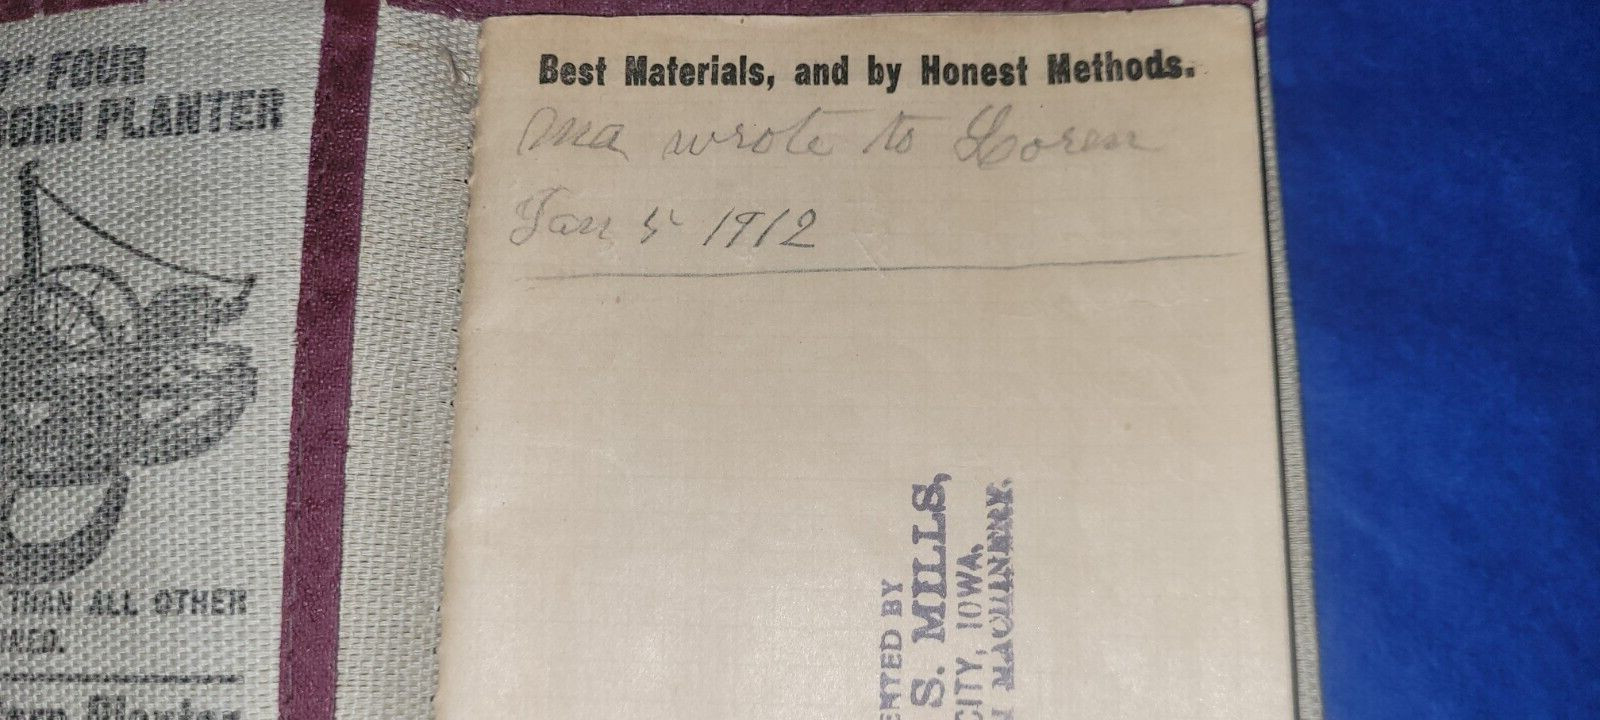 FOUR
CORN PLANTER
THAN ALL OTHER
Best Materials, and by Honest Methods.
Ma wrote to Loren
Jan 5 1912
BY
S. MILLS,
CITY, IOWA,
MACHINERY.